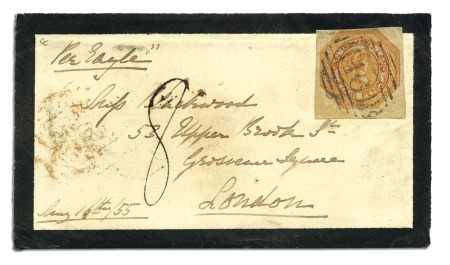 "Per Eagle"
Miss Blackwood
8
53 Upper Brook St
Grosvenor Square
London
Aug 16th/55